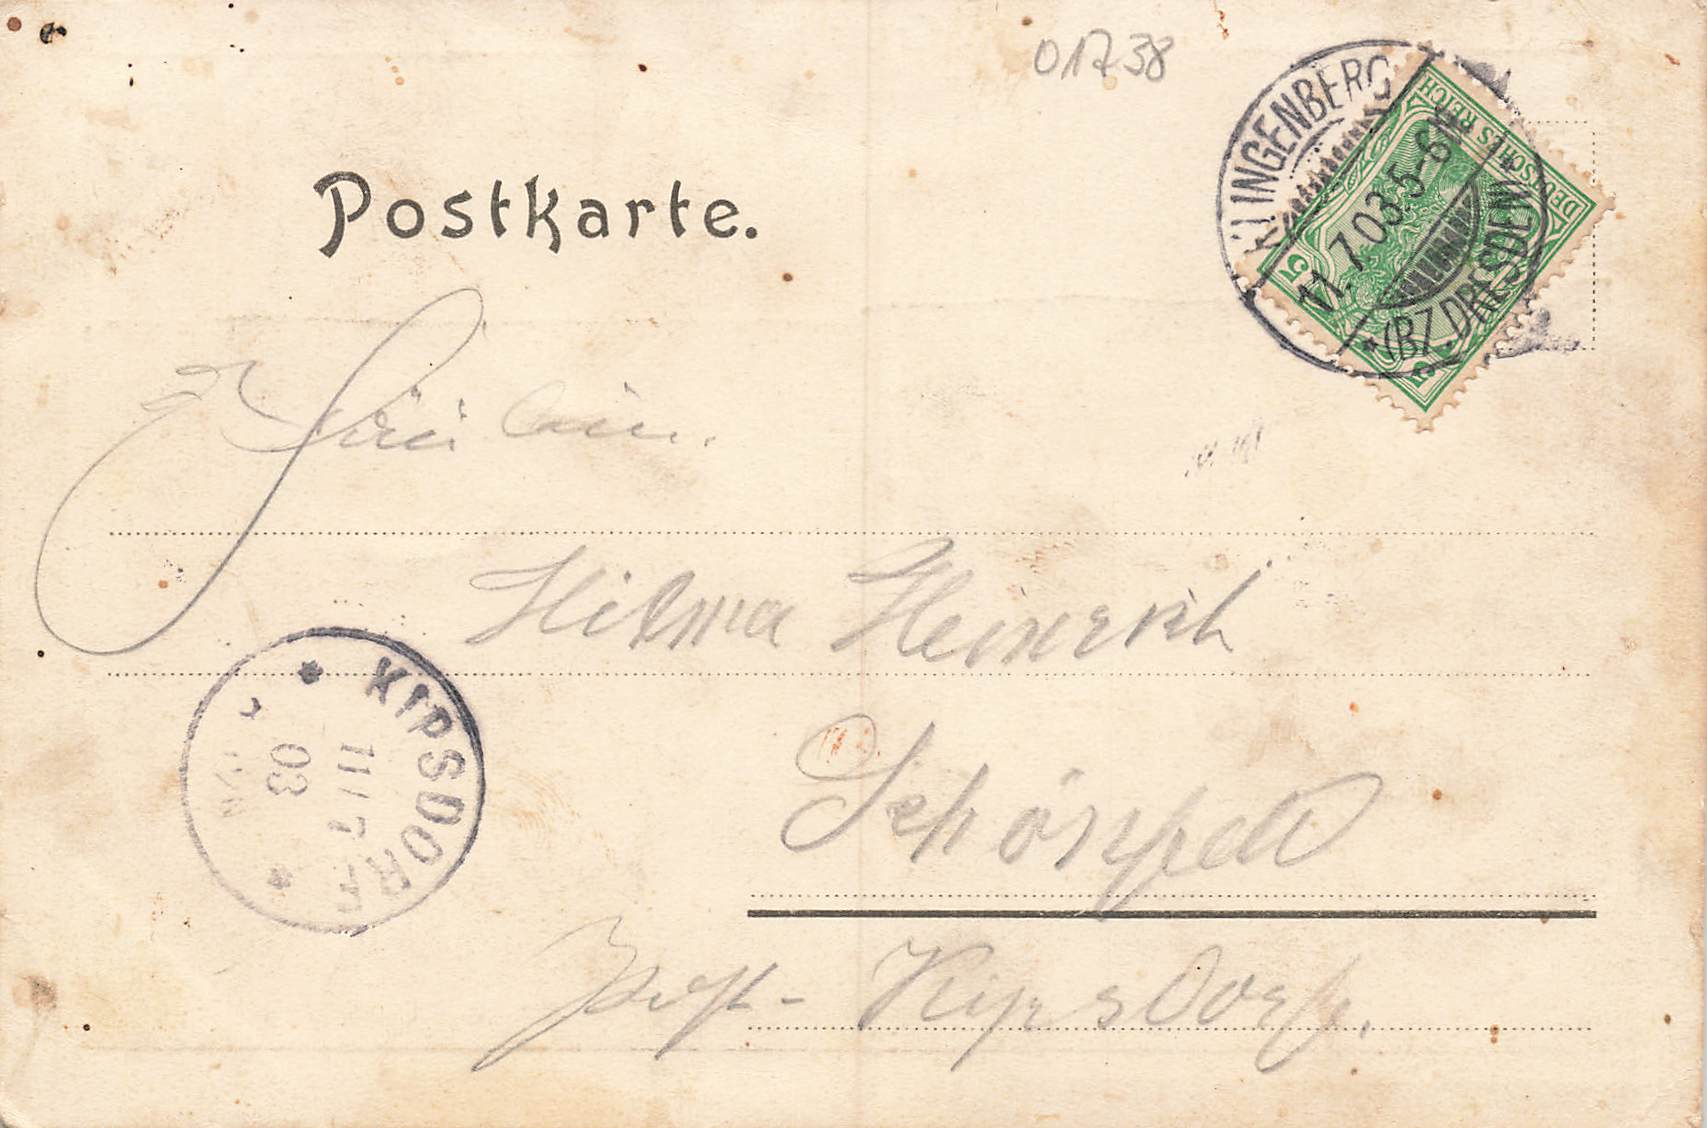 01738
KLINGENBERG
11.7.03.5-6N.
* (BZ. DRESDEN) *
DEUTSCHES REICH
5
5
Postkarte.
Fräulein.
Hilma Heinrich
Schönfeld
Post- Kipsdorf.
KIPSDORF
11 7
03